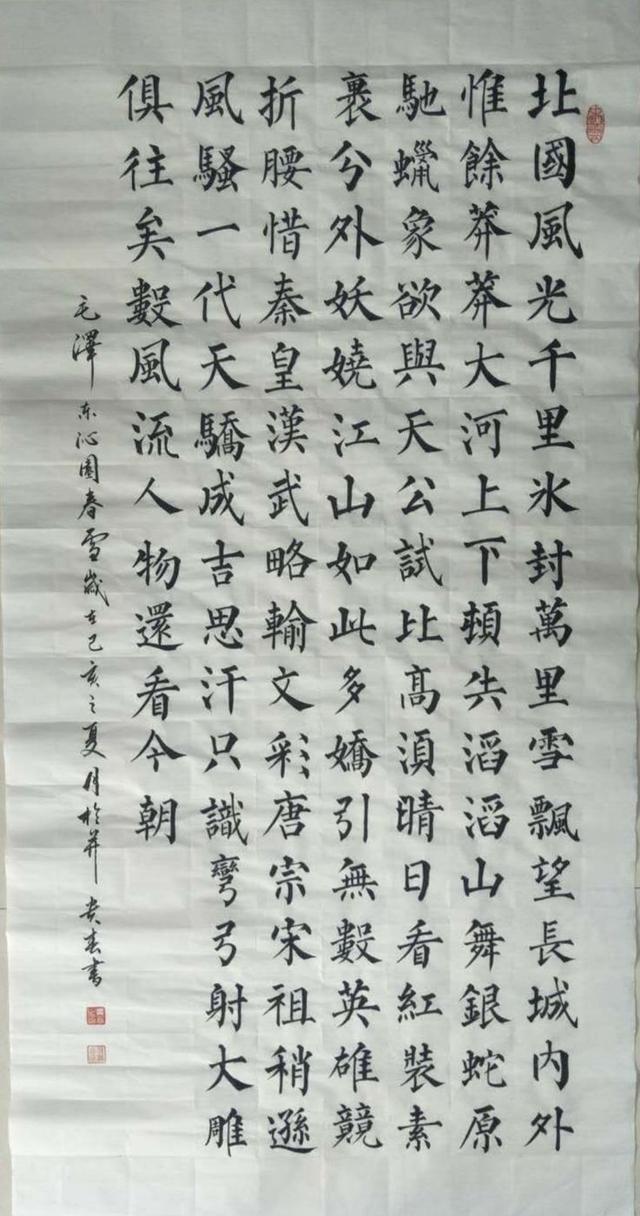 北國風光千里氷封萬里雪飄望長城内外
惟餘莽莽大河上下頓失滔滔山舞銀蛇原
馳蠟象欲與天公試比高湏晴日看紅裝素
裹分外妖嬈江山如此多嬌引無數英雄競
折腰惜秦皇漢武略輸文彩唐宗宋祖稍遜
風騷一代天驕成吉思汗只識彎弓射大雕
俱往矣數風流人物還看今朝
毛澤东沁園春雪歲在己亥之夏月於并 贵春書